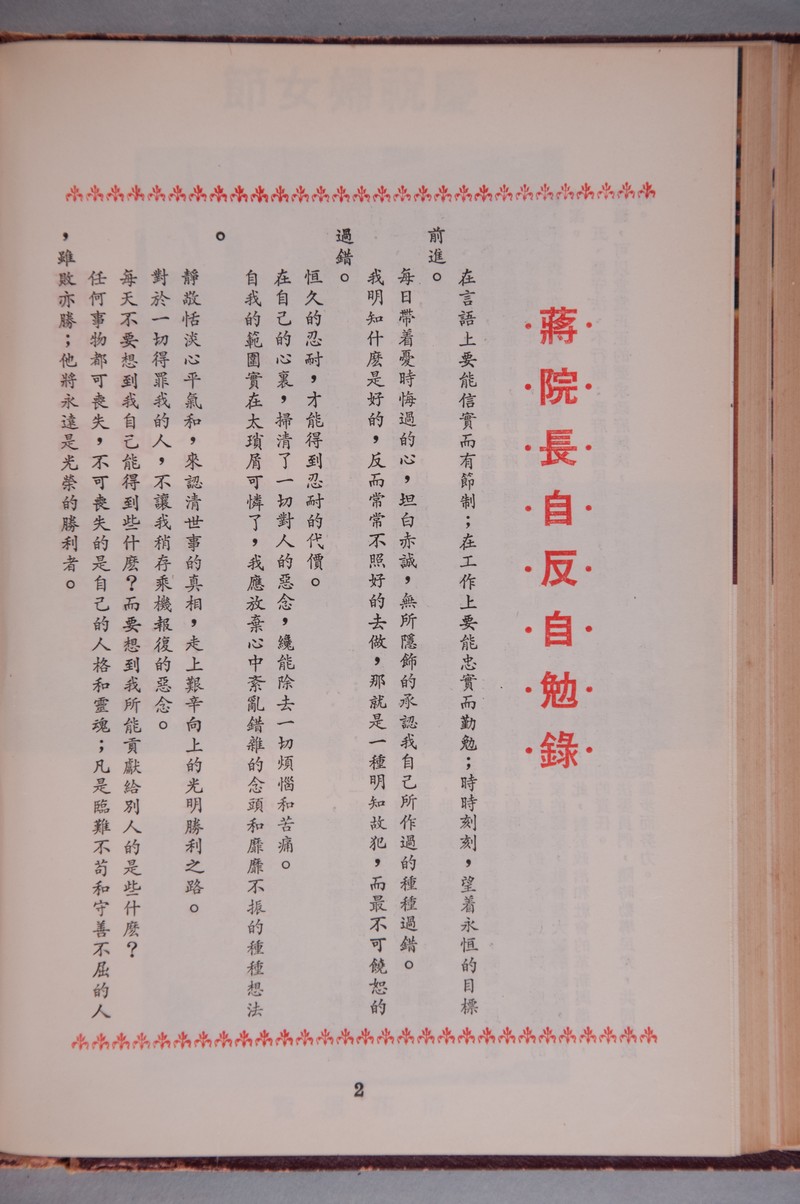 ·蔣·院·長·自·反·自·勉·錄·
在言語上要能信實而有節制；在工作上要能忠實而勤勉；時時刻刻，望着永恒的目標
前進。
每日帶着憂時悔過的心，坦白赤誠，無所隱飾的承認我自己所作過的種種過錯。
我明知什麽是好的，反而常常不照好的去做，那就是一種明知故犯，而最不可饒恕的
過錯。
恒久的忍耐，才能得到忍耐的代價。
在自己的心裏，掃清了一切對人的惡念，纔能除去一切煩惱和苦痛。
自我的範圍實在太瑣屑可憐了，我應放棄心中紊亂錯雜的念頭和靡靡不振的種種想法
。
靜敬恬淡心平氣和，來認清世事的真相，走上艱辛向上的光明勝利之路。
對於一切得罪我的人，不讓我稍存乘機報復的惡念。
每天不要想到我自己能得到些什麽？而要想到我所能貢獻給別人的是些什麽？
任何事物都可喪失，不可喪失的是自己的人格和靈魂；凡是臨難不苟和守善不屈的人
，雖敗亦勝；他將永遠是光榮的勝利者。
2